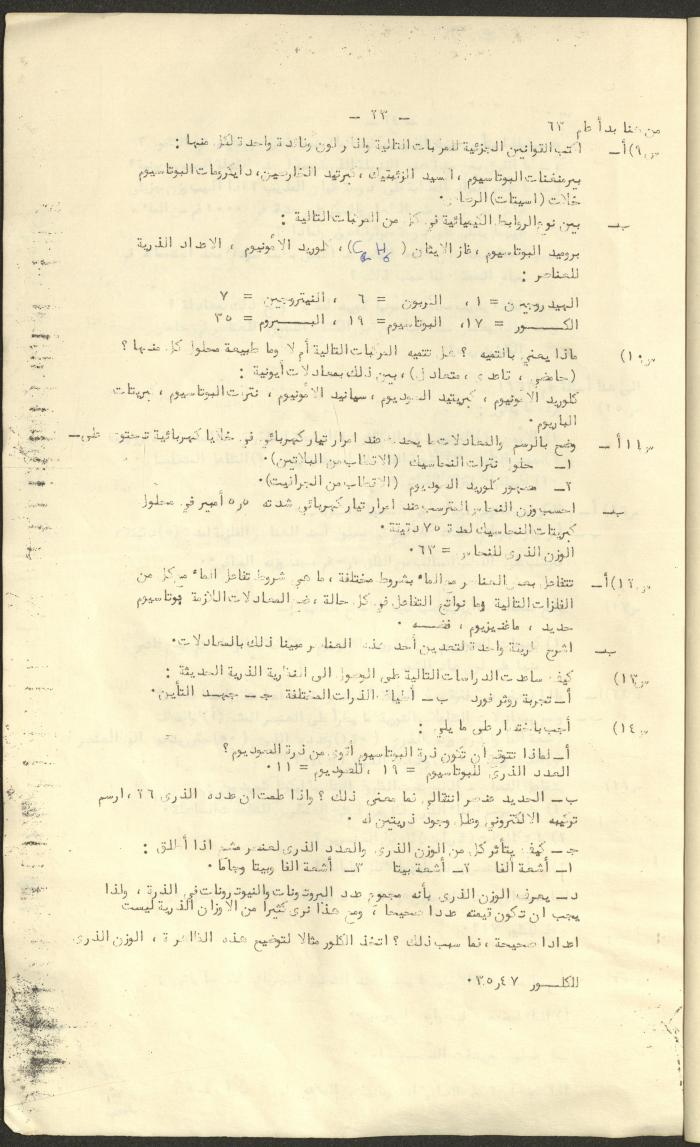 — ٢٣ —
من هنا بدأ عام ٦٣
س٩)أ— اكتب القوانين الجزئية للمركبات التالية واذكر لون وفائدة واحدة لكل منها :
بيرمنغنات البوتاسيوم ، اكسيد الزئبقيك ، كبريتيد الخارصين، دايكرومات البوتاسيوم
خلات (اسيتات) الرصاص.
ب— بين نوع الروابط الكيميائية في كل من المركبات التالية :
بروميد البوتاسيوم ، غاز الايثان ( C2 H6 )، كلوريد الأمونيوم ، الاعداد الذرية
للعناصر :
الهيدروجين = ١ ، الكربون = ٦ ، النيتروجين = ٧
الكلـــور = ١٧، البوتاسيوم= ١٩ ، البـــروم = ٣٥
س١٠) ماذا يعني بالتميه ؟ هل تتميه المركبات التالية أم لا وما طبيعة محلول كل منها ؟
(حامضي ، قاعدي ، متعادل) ، بين ذلك بمعادلات أيونية :
كلوريد الأمونيوم ، كبريتيد الصوديوم ، سيانيد الأمونيوم ، نترات البوتاسيوم ، كبريتات
الباريوم.
س١١أ— وضح بالرسم والمعادلات ما يحدث عند امرار تيار كهربائي في خلايا كهربائية تحتوي على—
١— محلول نترات النحاسيك (الاقطاب من البلاتين).
٢— مصهور كلوريد الصوديوم (الاقطاب من الجرافيت).
ب— احسب وزن النحاس المترسب عند امرار تيار كهربائي شدته ٥ر٥ أمبير في محلول
كبريتات النحاسيك لمدة ٧٥ دقيقة.
الوزن الذري للنحاس = ٦٣.
س١٢)أ— تتفاعل بعض العناصر مع الماء بشروط مختلفة ، ما هي شروط تفاعل الماء مع كل من
الفلزات التالية وما نواتج التفاعل في كل حالة ، ضع المعادلات اللازمة بوتاسيوم
حديد ، ماغنيزيوم ، فضـــه .
ب— اشرح طريقة واحدة لتعدين أحد هذه العناصر مبينا ذلك بالمعادلات.
س١٣) كيف ساعدت الدراسات التالية على الوصول الى النظرية الذرية الحديثة :
أ— تجربة روثرفورد ب— أطياف الذرات المختلفة ج— جهـــد التأين.
س١٤) أجب باختصار على ما يلي :
أ— لماذا نتوقع ان تكون ذرة البوتاسيوم أقوى من ذرة الصوديوم ؟
العدد الذري للبوتاسيوم = ١٩ ، للصوديوم = ١١ .
ب— الحديد عنصر انتقالي فما معنى ذلك ؟ واذا علمت ان عدده الذري ٢٦ ، ارسم
تركيبه الالكتروني وعلل وجود ذريتين له .
ج— كيف يتأثر كل من الوزن الذري والعدد الذري لعنصر مشع اذا أطلق :
١— أشعة ألفا ٢— أشعة بيتا ٣— أشعة الفا وبيتا وجاما .
د— يعرف الوزن الذري بأنه مجموع عدد البروتونات والنيوترونات في الذرة ، ولذا
يجب ان تكون قيمته عددا صحيحا ، ومع هذا نرى كثيرا من الأوزان الذرية ليست
اعدادا صحيحة ، فما سبب ذلك ؟ اتخذ الكلور مثالا لتوضيح هذه الظاهرة ، الوزن الذري
للكلـــور ٤٧ر٣٥.